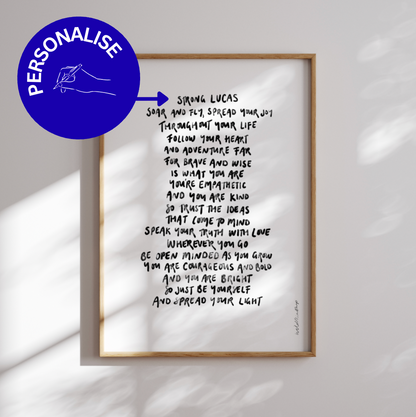 PERSONALISE
STRONG LUCAS
SOAR AND FLY, SPREAD YOUR JOY
THROUGHOUT YOUR LIFE
FOLLOW YOUR HEART
AND ADVENTURE FAR
FOR BRAVE AND WISE
IS WHAT YOU ARE
YOU'RE EMPATHETIC
AND YOU ARE KIND
SO TRUST THE IDEAS
THAT COME TO MIND
SPEAK YOUR TRUTH WITH LOVE
WHEREVER YOU GO
BE OPEN MINDED AS YOU GROW
YOU ARE COURAGEOUS AND BOLD
AND YOU ARE BRIGHT
SO JUST BE YOURSELF
AND SPREAD YOUR LIGHT